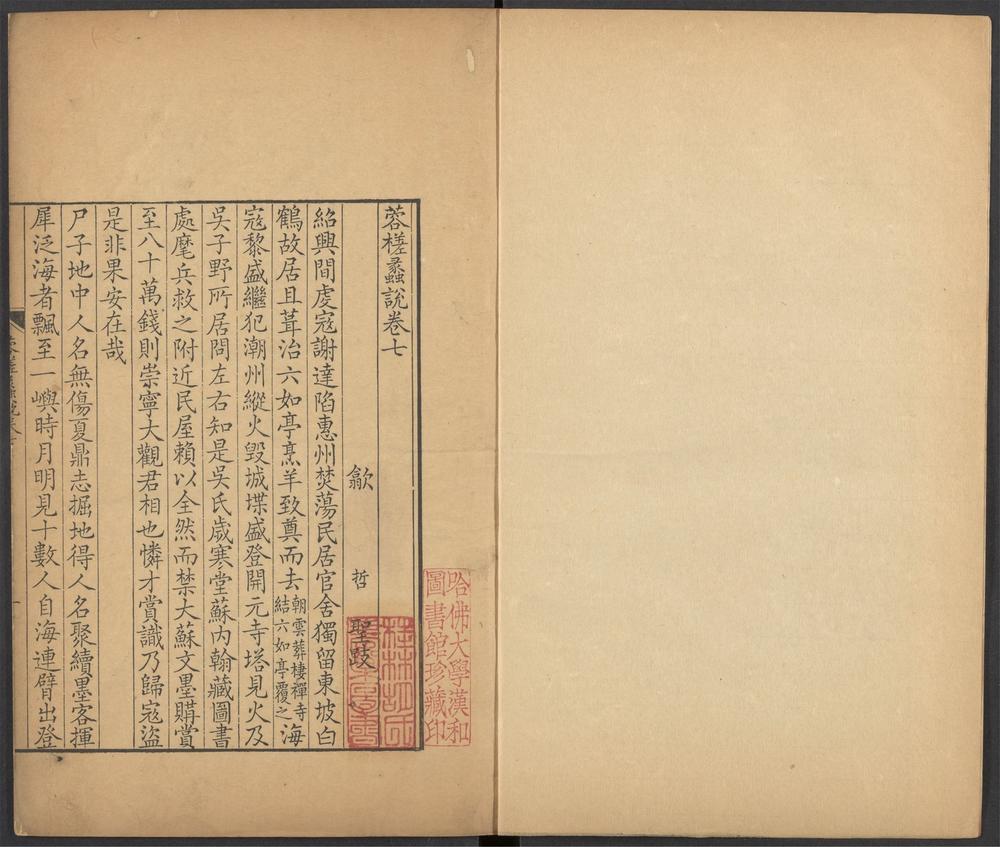 蓉槎蠡說卷七
歙 哲 聖跂
紹興間虔寇謝達陷惠州焚蕩民居官舍獨留東坡白
鶴故居且葺治六如亭烹羊致奠而去朝雲葬棲禪寺結六如亭覆之海
寇黎盛繼犯潮州縱火毀城堞盛登開元寺塔見火及
吳子野所居問左右知是吳氏歲寒堂蘇內翰藏圖書
處麾兵救之附近民屋賴以全然而禁大蘇文墨購賞
至八十萬錢則崇寧大觀君相也憐才賞識乃歸寇盜
是非果安在哉
尸子地中人名無傷夏鼎志掘地得人名聚續墨客揮
犀泛海者飄至一嶼時月明見十數人自海連臂出登
哈佛大學漢和
圖書館珍藏印